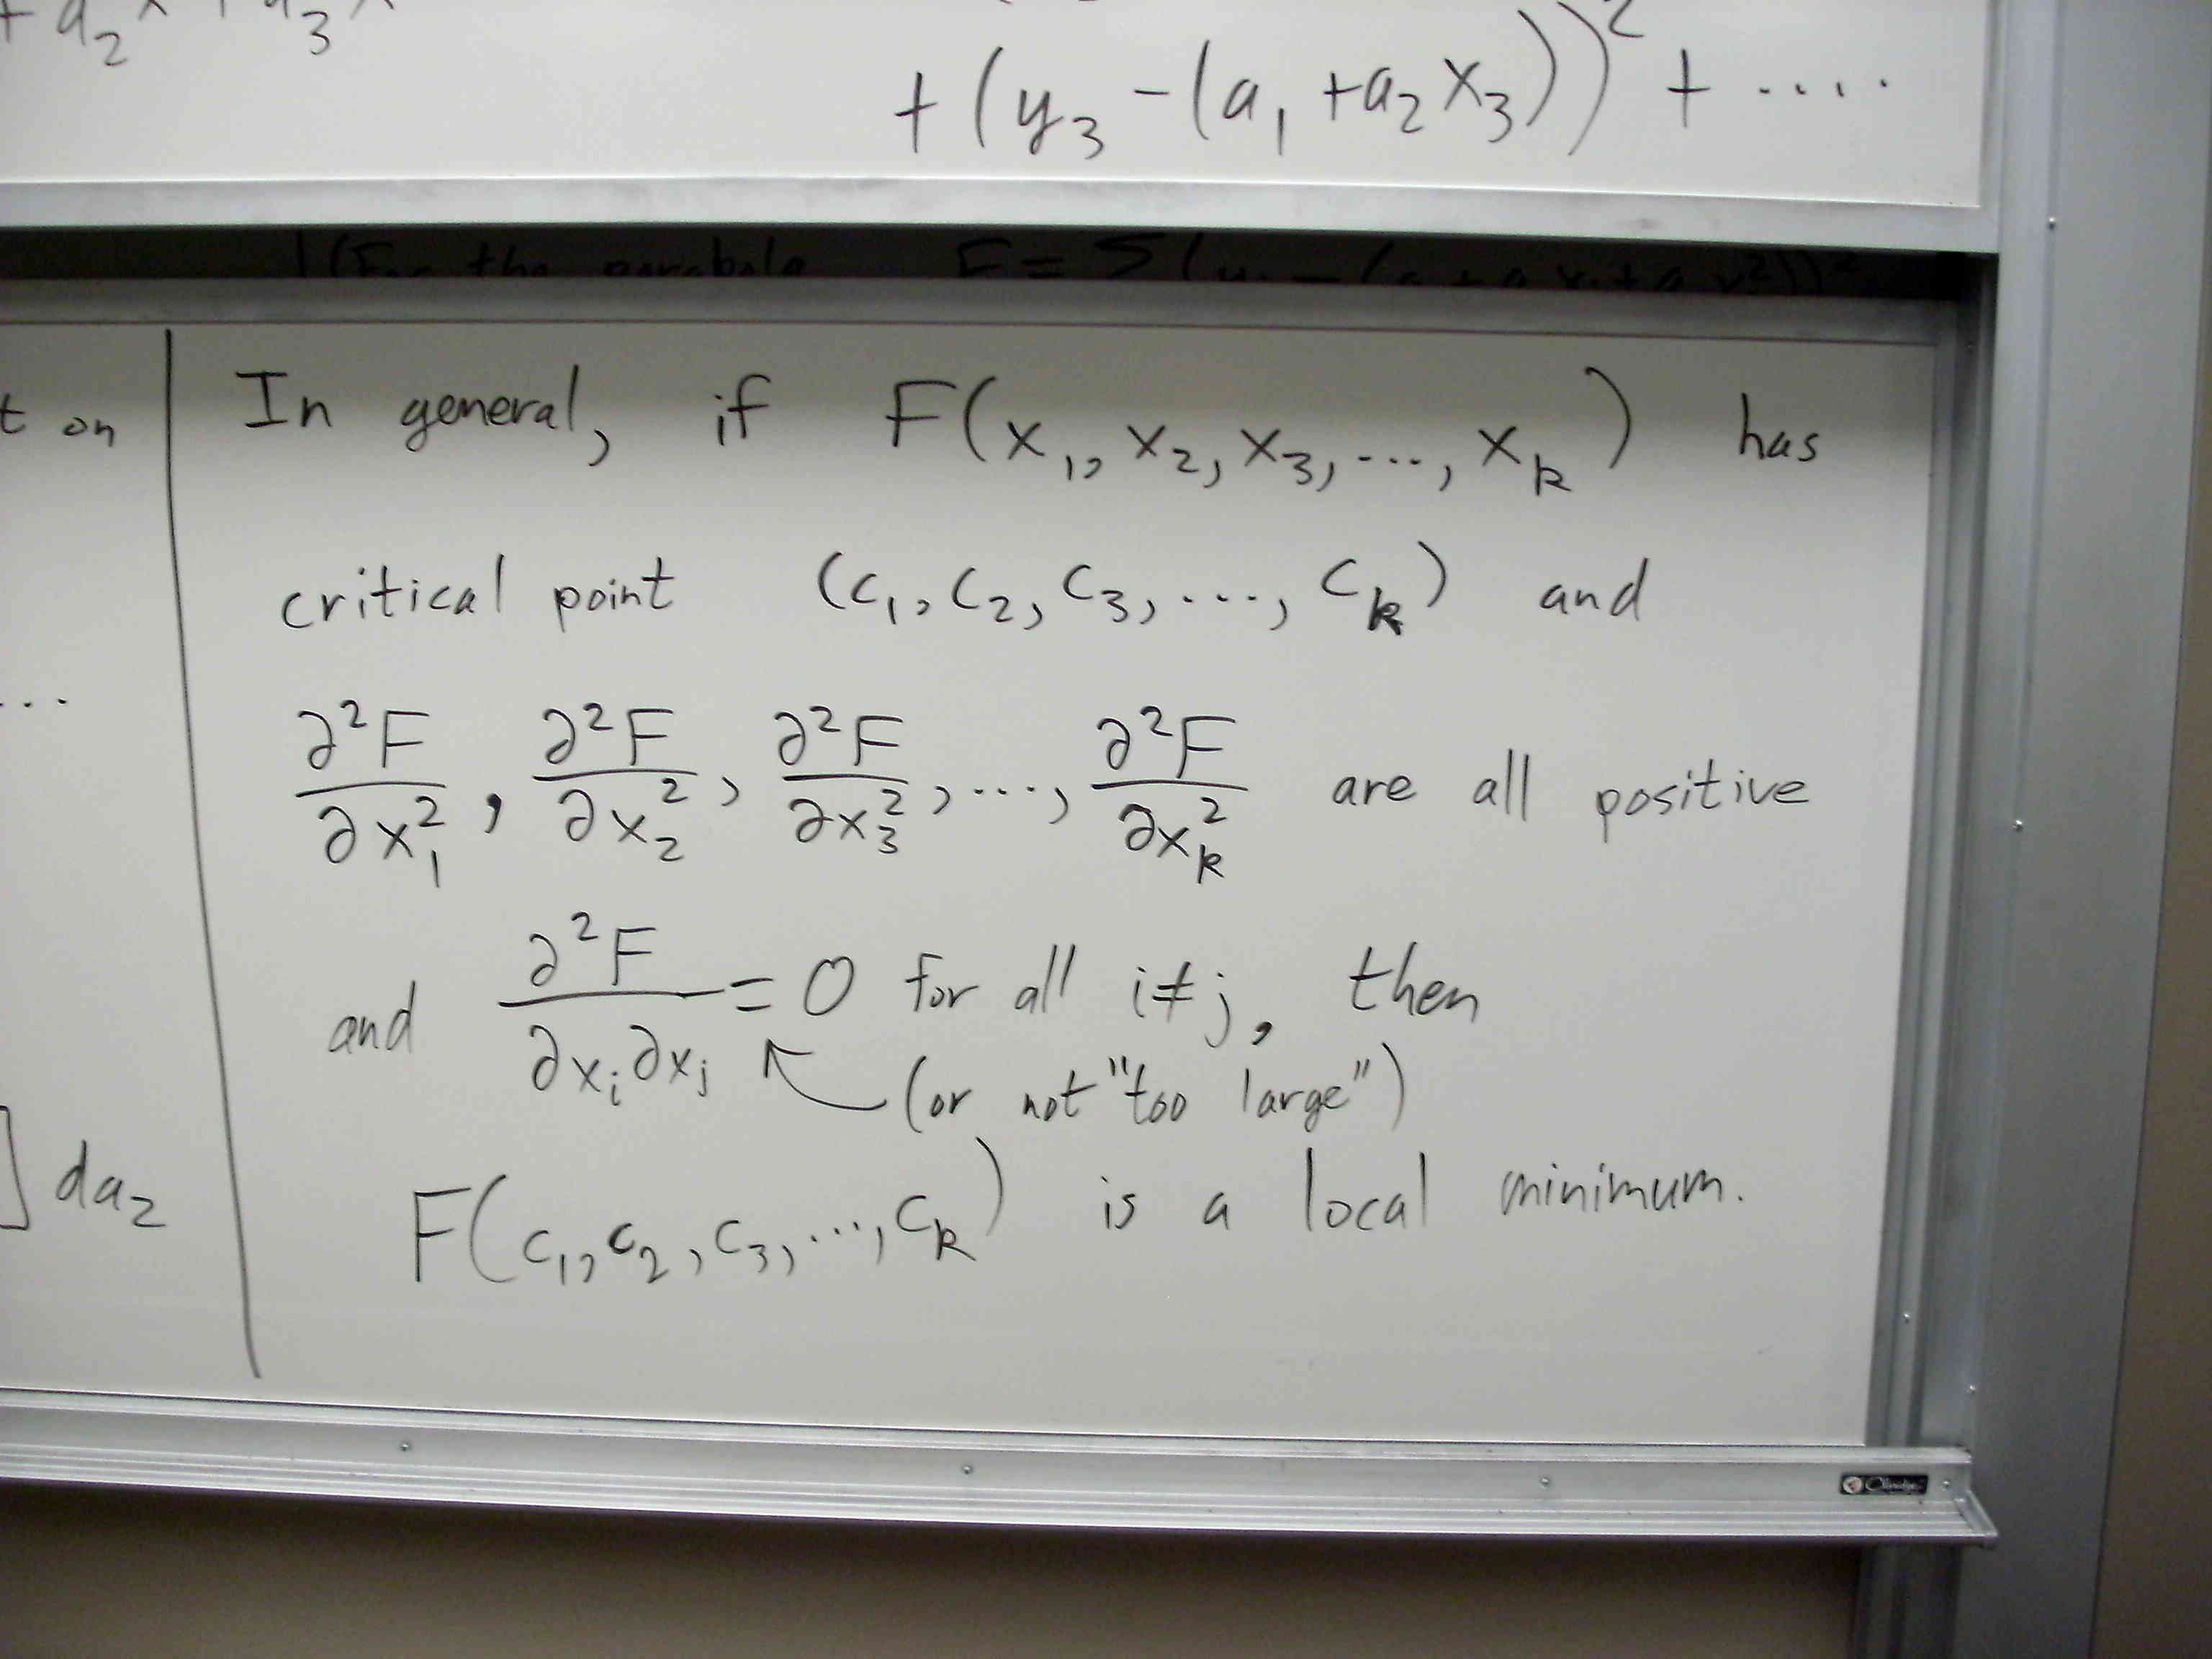 + a₂x + a₃x
+ (y₃ - (a₁ + a₂x₃))² + ....
(For the parabola F = Σ(yᵢ - (a₁ + a₂xᵢ + a₃xᵢ²))²
t on
In general, if F(x₁, x₂, x₃, ..., xₖ) has
critical point (c₁, c₂, c₃, ..., cₖ) and
...
∂²F/∂x₁², ∂²F/∂x₂², ∂²F/∂x₃², ..., ∂²F/∂xₖ² are all positive
and ∂²F/∂xᵢ∂xⱼ = 0 for all i≠j, then
(or not "too large")
] da₂
F(c₁, c₂, c₃, ..., cₖ) is a local minimum.